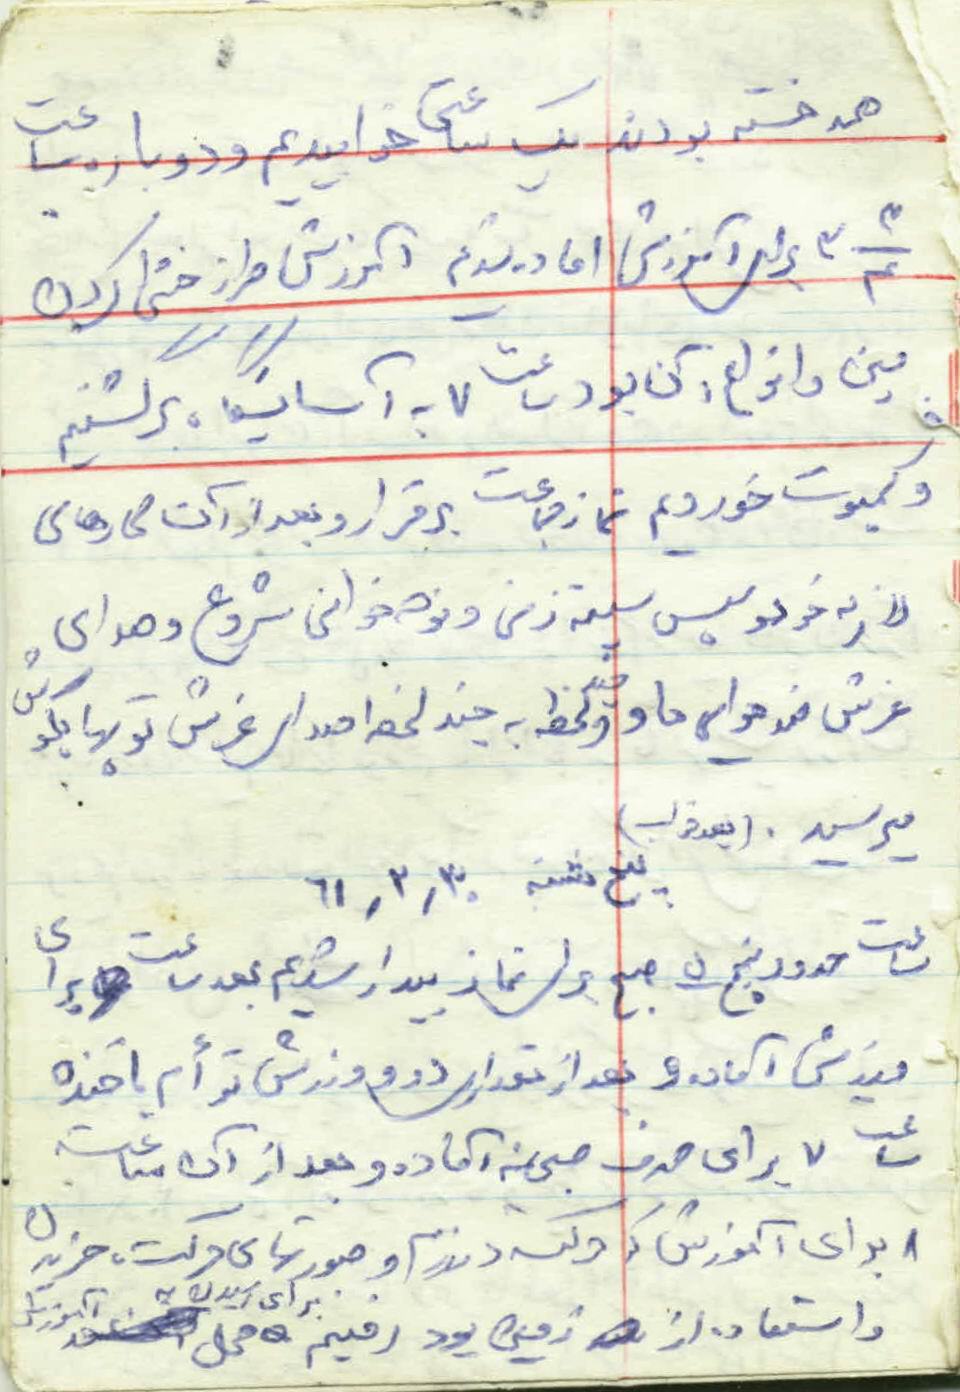 همه خسته بودند یک ساعتی خوابیدیم و دوباره ساعت
۳ ۳/۴ برای آموزش اماده شدیم آموزش طرز خنثی کردن
مین و انواع آن بود ساعت ۷ به آسایشگاه برگشتیم
و کمپوت خوردیم نماز جماعت برقرار و بعد از آن کارهای
لازمه خود و سپس سینه زنی و نوحه خوانی شروع و صدای
غرش ضد هوایی ما و لحظه به چند لحظه صدای غرش توپها بگوش
میرسید . (بعد خواب)
پنج شنبه ۶۱/۳/۳۰
ساعت حدود پنج صبح برای نماز بیدار شدیم بعد ساعت برای
ورزش آماده و بعد از مقداری دو و ورزش توأم با خنده
ساعت ۷ برای صرف صبحانه آماده و بعد از آن ساعت
۸ برای آموزش که و صورتهای حرکت، خزیدن
و استفاده از زمین بود رفتیم محل برای رسیدن به آموزش